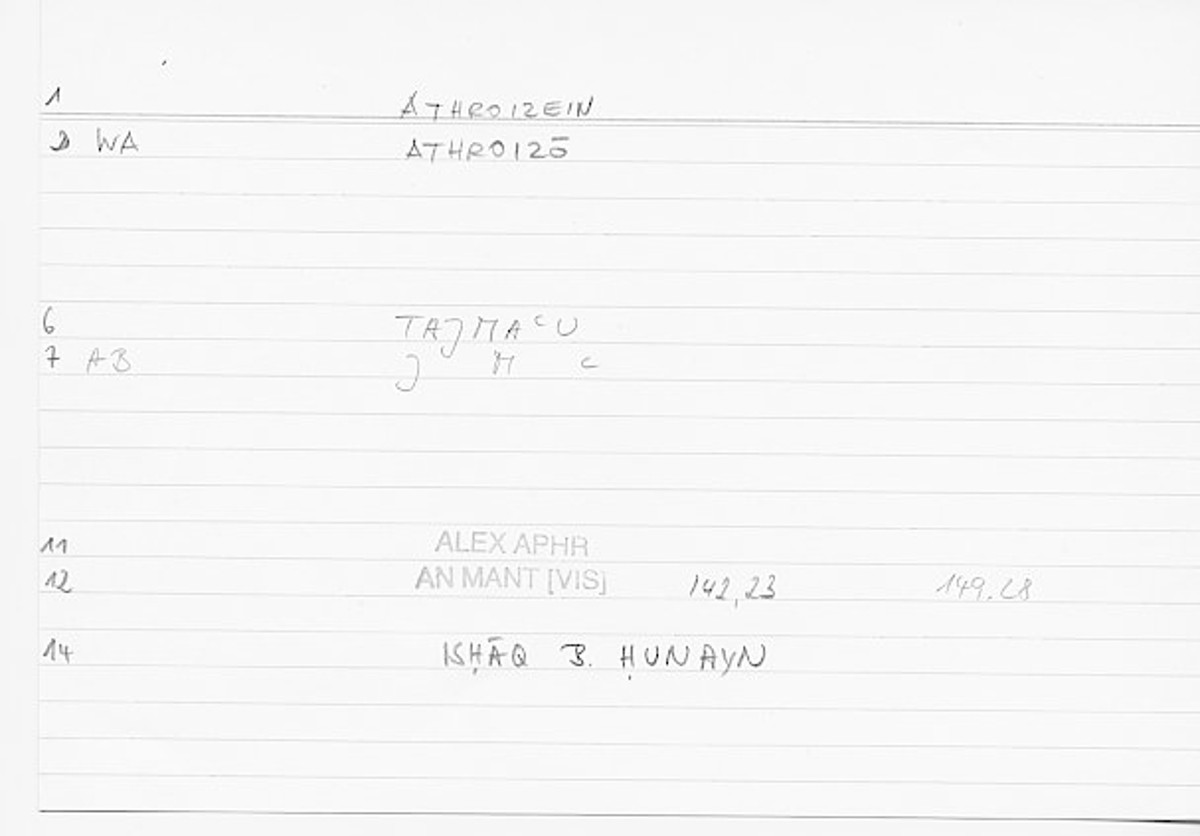 1 ATHROIZEIN
2 WA ATHROIZŌ
6 TAJMAᶜU
7 AB J M ᶜ
11 ALEX APHR
12 AN MANT [VIS] 142,23 149.28
14 ISḤĀQ B. ḤUNAYN